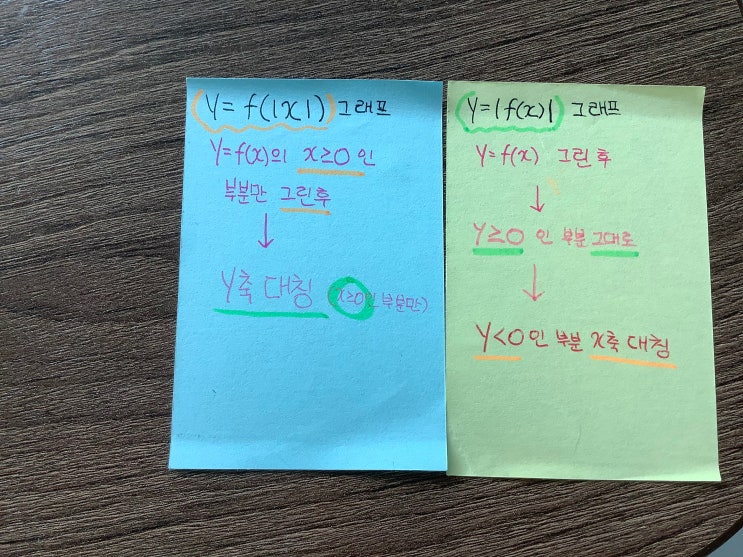 Y= f(|x|) 그래프
Y=f(x)의 x≥0 인
부분만 그린후
↓
Y축 대칭 (x≥0인 부분만)
Y=|f(x)| 그래프
Y=f(x) 그린 후
↓
Y≥0 인 부분 그대로
↓
Y<0 인 부분 x축 대칭